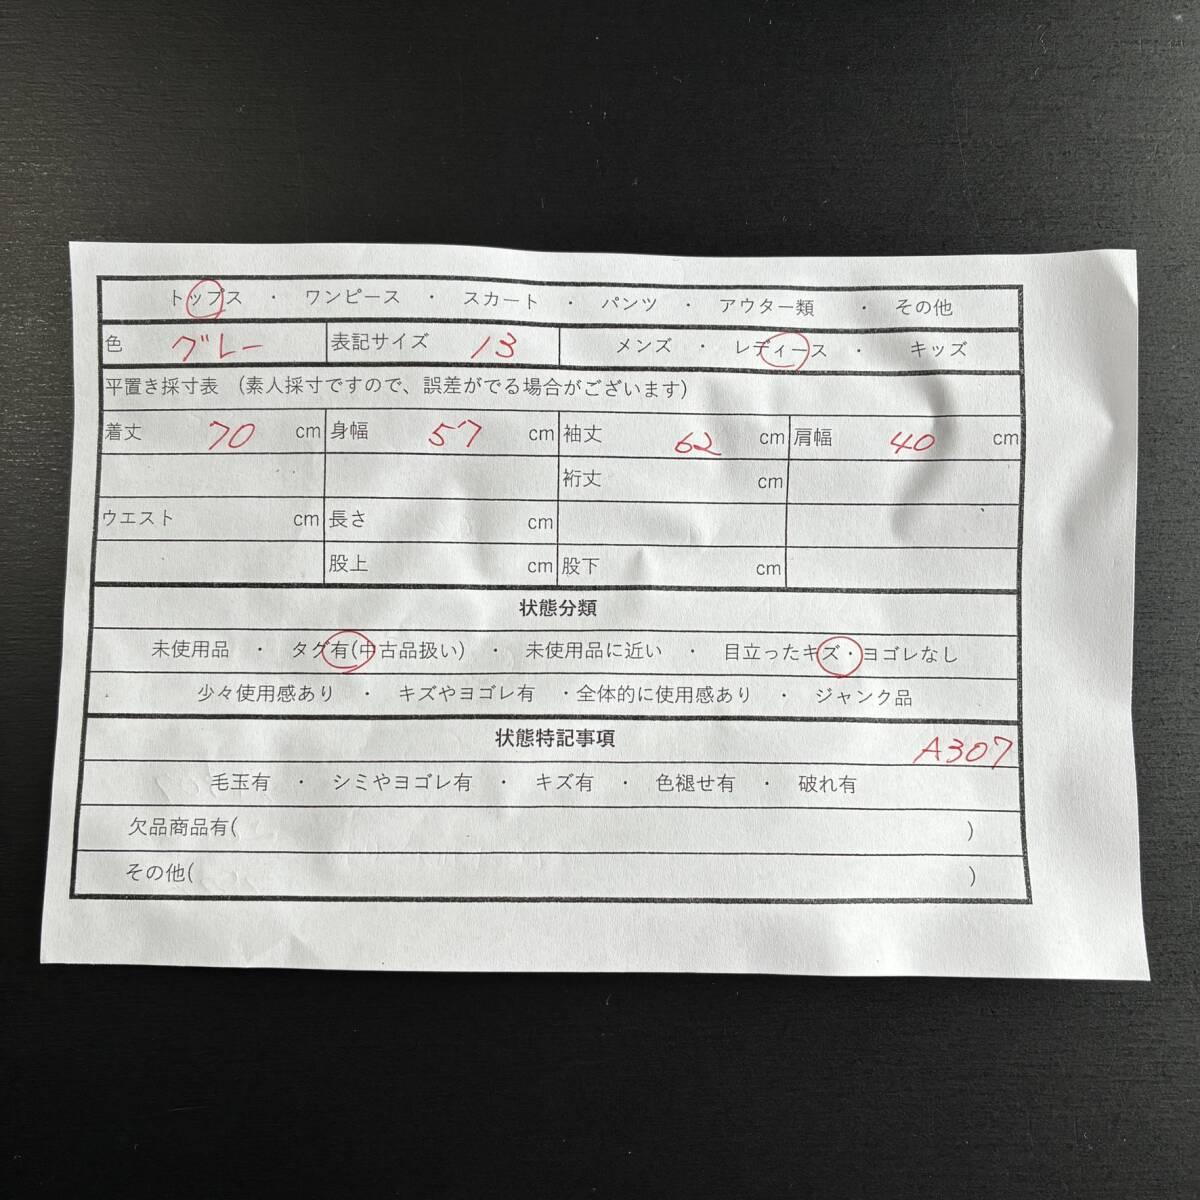 トップス ・ ワンピース ・ スカート ・ パンツ ・ アウター類 ・ その他
色 グレー 表記サイズ 13 メンズ ・ レディース ・ キッズ
平置き採寸表 (素人採寸ですので、誤差がでる場合がございます)
着丈 70 cm 身幅 57 cm 袖丈 62 cm 肩幅 40 cm
裄丈 cm
ウエスト cm 長さ cm
股上 cm 股下 cm
状態分類
未使用品 ・ タグ有(中古品扱い) ・ 未使用品に近い ・ 目立ったキズ・ヨゴレなし
少々使用感あり ・ キズやヨゴレ有 ・全体的に使用感あり ・ ジャンク品
状態特記事項 A307
毛玉有 ・ シミやヨゴレ有 ・ キズ有 ・ 色褪せ有 ・ 破れ有
欠品商品有( )
その他( )